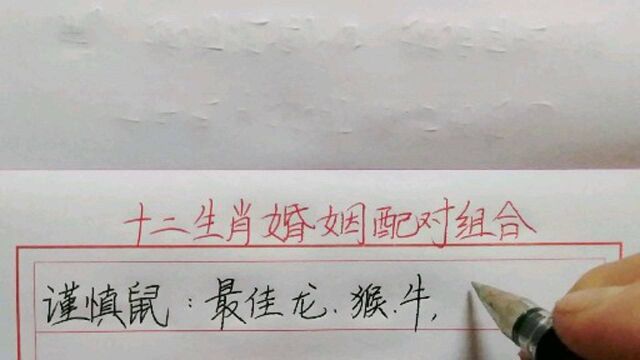 十二生肖婚姻配对组合
谨慎鼠：最佳龙.猴.牛,